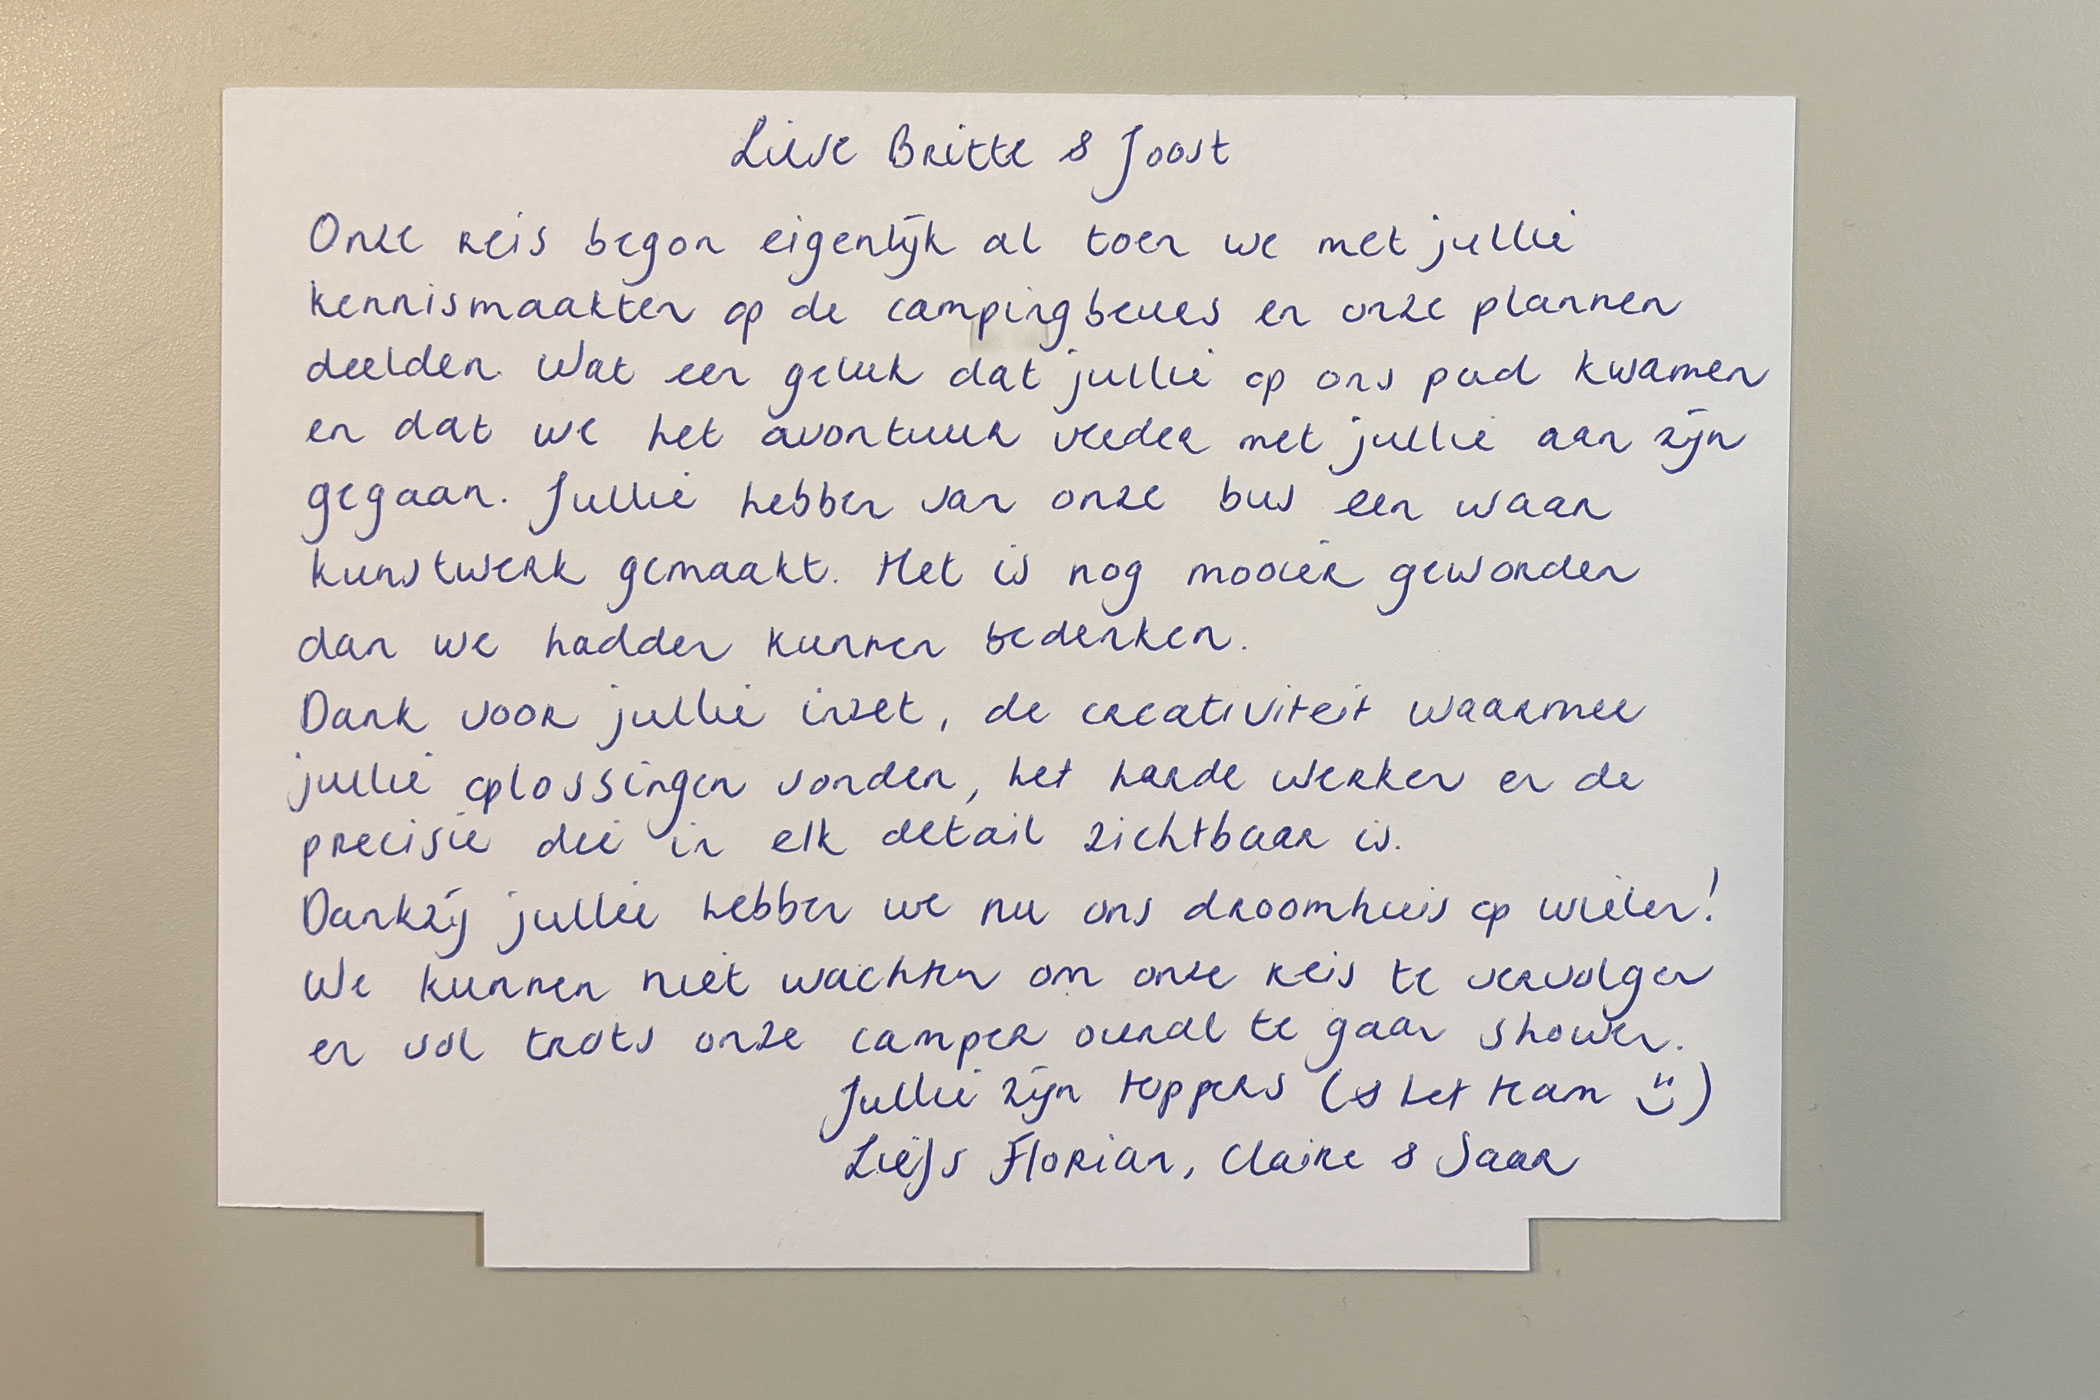 Lieve Britte & Joost
Onze reis begon eigenlijk al toen we met jullie
kennismaakten op de campingbeurs en onze plannen
deelden. Wat een geluk dat jullie op ons pad kwamen
en dat we het avontuur verder met jullie aan zijn
gegaan. Jullie hebben van onze bus een waar
kunstwerk gemaakt. Het is nog mooier geworden
dan we hadden kunnen bedenken.
Dank voor jullie inzet, de creativiteit waarmee
jullie oplossingen vonden, het harde werken en de
precisie die in elk detail zichtbaar is.
Dankzij jullie hebben we nu ons droomhuis op wielen!
We kunnen niet wachten om onze reis te vervolgen
en vol trots onze camper overal te gaan showen.
Jullie zijn toppers (& het team ü)
Liefs Florian, Claire & Saar